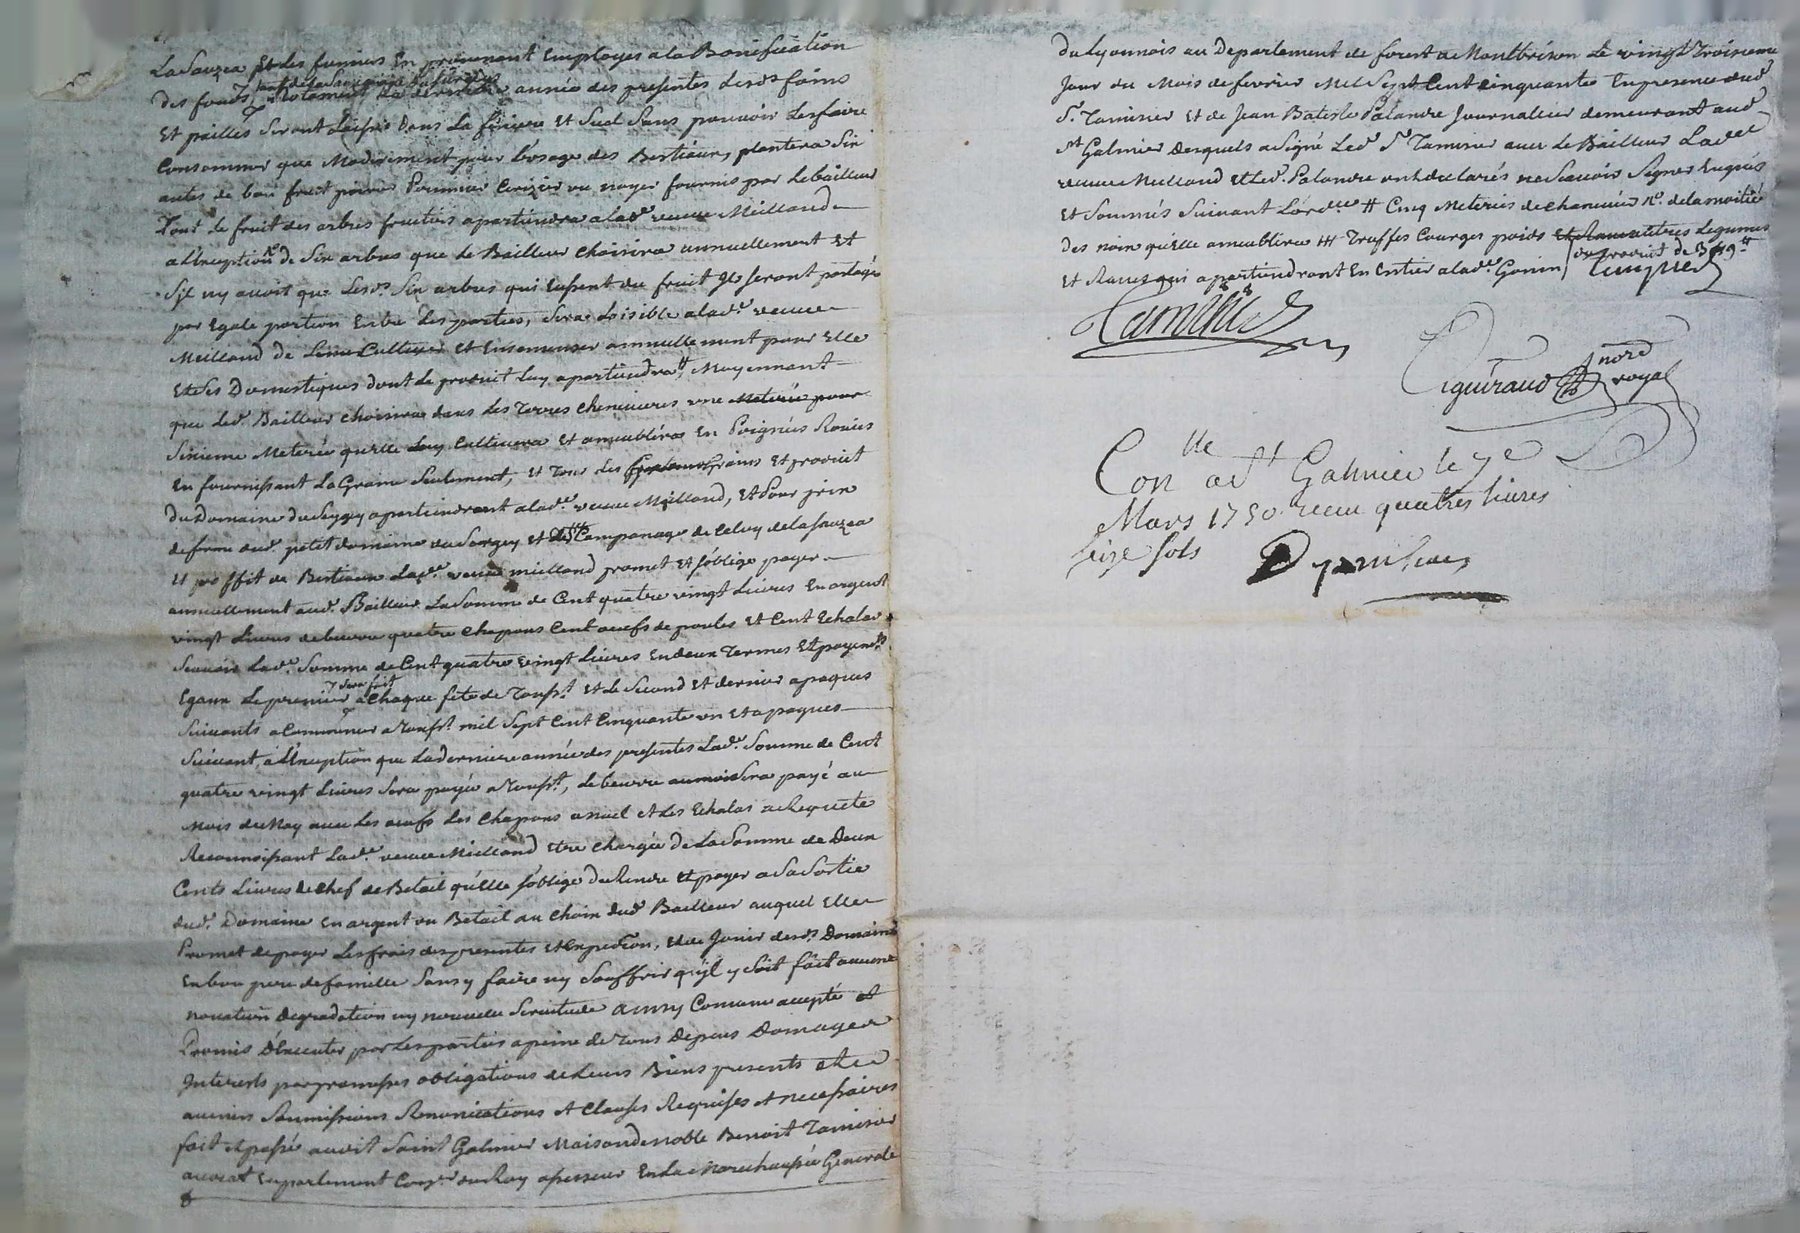 La Sauzea et des fumiers En provenant Employes a la Bonification
des fonds notament la derniere année des presentes lesd.s foins
Et pailles seront laissés dans La feniere Et Suel Sans pouvoir Les faire
Consommer que Modicement pour l'usage des Bestiaux, plantera Six
antes de bon fruit poirier Pommier Cerizier ou noyer fournis par le bailleur
Tout le fruit des arbres fruitiers apartiendra a lad.e veuve Meilland
a l'Exception de Six arbres que le Bailleur choisira annuellement Et
S'jl ny avoit que lesd.s Six arbres qui Eussent du fruit Jls seront partagé
par Egale portion Entre Les parties, Sera Loisible a lad.e veuve
Meilland de Cultiver Et Ensemenser annuellement pour Elle
Et Ses Domestiques dont le produit luy apartiendra, Moyennant
que led. Bailleur choisira dans les Terres chenevieres une Meterée pour
Sixieme Meterée qu'elle luy Cultivera Et ameublira En Poignées
En fournissant La Graine Seulement, Et Tous les grains Et produit
du Domaine du apartiendront a lad.e veuve Meilland, Et Pour prix
de ferme dud. petit domaine du Et Campanage de Celuy de la Sauzea
Et proffit de Bestiaux Lad.e veuve mielland promet Et s'oblige payer
annuellement aud. Bailleur La Somme de Cent quatre vingt Livres En argent
vingt Livres de beurre quatre Chapons Cent oeufs de poules Et Cent Echalas
Scavoir Lad.e Somme de Cent quatre vingt Livres En deux Termes Et payem.ts
Egaux Le premier y sera fait a Chaque fete de Touss.t Et le Second Et dernier a paques
Suivants a Commencer a Touss.t mil Sept Cent Cinquante un Et a paques
Suivant, a l'Exception que La derniere année des presentes Lad.e Somme de Cent
quatre vingt Livres Sera payée a Touss.t, le beurre sera payé au
Mois de May avec Les oeufs Les Chapons a noel et Les Echalas a Requete
Reconnoissant Lad.e veuve Mielland Etre Chargée de La Somme de Deux
Cents Livres de Chef de Betail qu'Elle s'oblige de Rendre Et payer a Sa Sortie
dud. Domaine En argent ou Betail au Choix dud. Bailleur auquel Elle
Promet de payer Les frais des presentes Et Expedion, Et de Jouir desd.s Domaine
En bon pere de famille Sans y faire ny Souffrir qu'jl y Soit fait aucune
novation degradation ny nouvelle Servitude accepté et
Promis d'Executer par Les parties a peine de Tous Depens Domages
Interests par promesses obligations de Leurs Biens presents et a
avenir Soumissions Renonciations et Clauses Requises et necessaires
fait et passé audit Saint Galmier Maison de noble Benoit Tamisier
avocat En parlement Con.er du Roy assesseur En La Marechaussée Generale
du Lyonnois au Departement de forest a Montbrison Le vingt Troisieme
Jour du Mois de fevrier Mil Sept Cent cinquante En presence dud.
S.r Tamisier Et de Jean Batiste Palandre Journalier demeurant aud.
St Galmier desquels a Signé Led. S.r Tamisier avec le Bailleur Lad.e
veuve Meilland Et Led. Palandre ont declarés ne Scavoir Signer Enquis
Et Sommés Suivant L'ord.ce Cinq Meterées de chenevier de la moitié
des noix qu'elle ameublira Truffes Courges poids Legumes
Et Raves qui apartiendront En Entier a lad.e
Tamisier
Ciguiraud no.re royal
Con.lle a St Galmier le 7e
Mars 1750 recu quatres livres
Seize sols